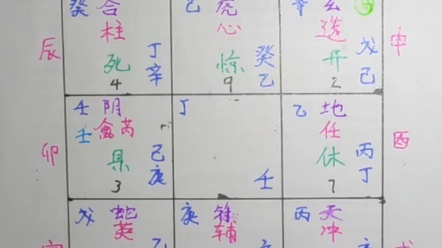 癸 合 己 虎 玄
柱 心 逢
辰 死 丁 惊 癸 开 戊 申
4 辛 9 乙 2 己
壬 阴 丁 乙 地
壬 禽芮 任 酉
卯 景 己 休 丙
3 庚 壬 7 丁
戊 蛇 庚 丙 天
英 辅 冲